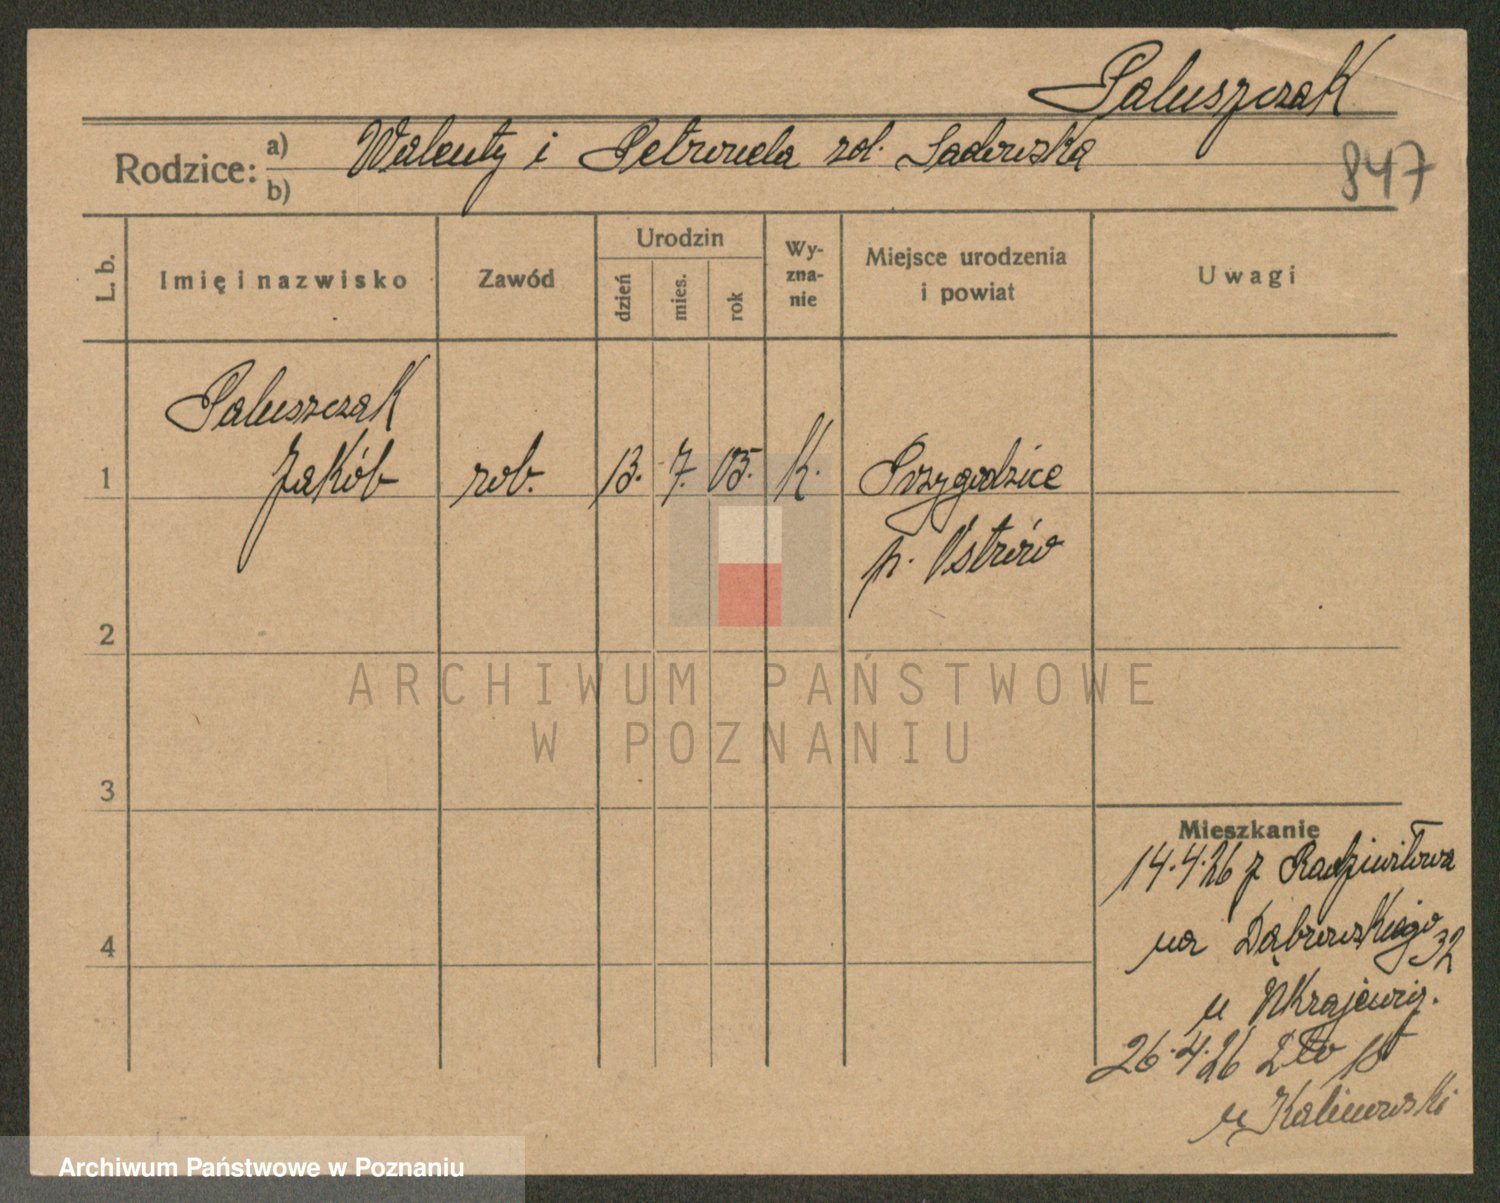 Paluszczak
847
Rodzice: a) Walenty i Petronela rol. Sadowska
b)
L. b.
Imię i nazwisko
Zawód
Urodzin
dzień
mies.
rok
Wy-
zna-
nie
Miejsce urodzenia
i powiat
Uwagi
Paluszczak
1 Jakób rob. 13. 7. 05. K. Przygodzice
p. Ostrów
2
ARCHIWUM PAŃSTWOWE
W POZNANIU
3
4
Mieszkanie
14.4.26 z Radziwiłowa
na Dąbrowskiego 32
u
26.4.26
u Kalinowski
Archiwum Państwowe w Poznaniu